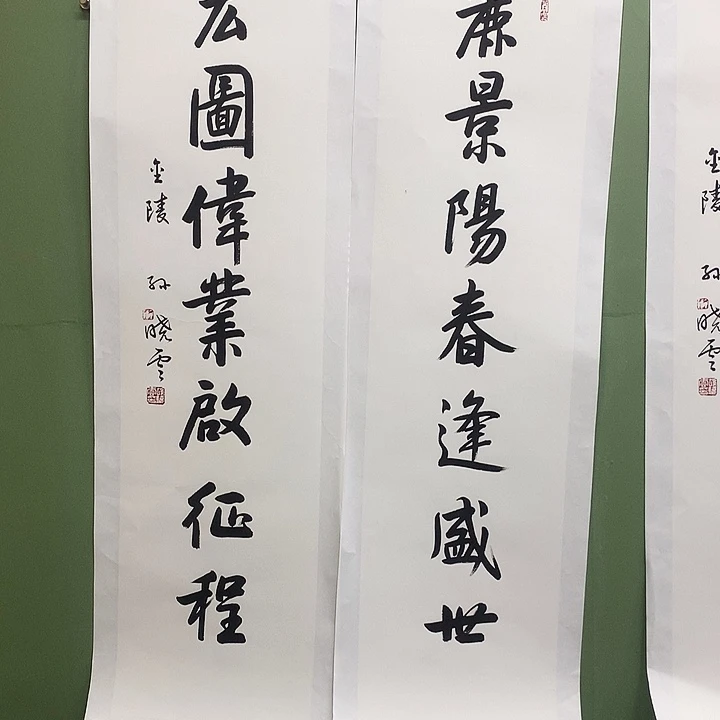 金陵 孙晓雲
麗景陽春逢盛世
宏圖偉業啟征程
金陵 孙晓雲